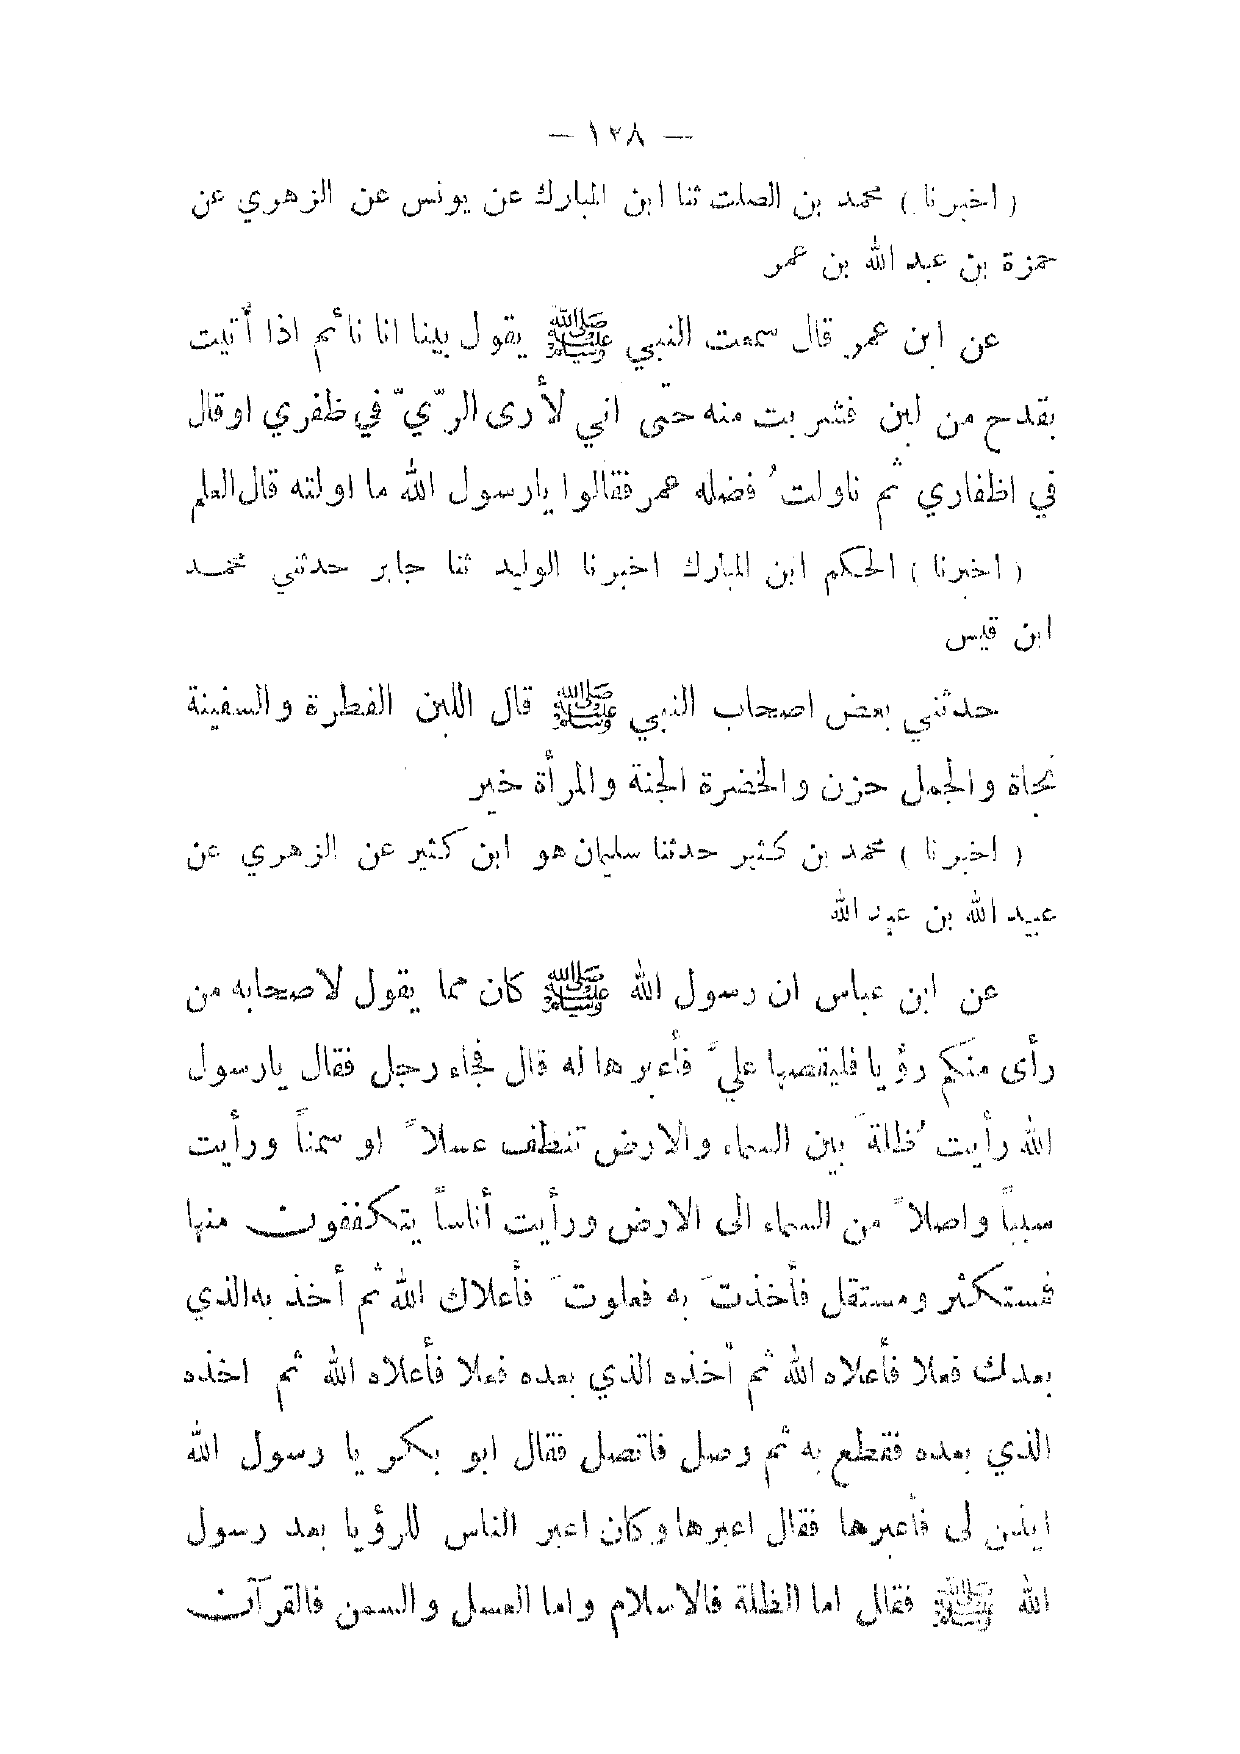 — ١٢٨ —
( اخبرنا ) محمد بن الصلت ثنا ابن المبارك عن يونس عن الزهري عن
حمزة بن عبد الله بن عمر
عن ابن عمر قال سمعت النبي ﷺ يقول بينا انا نائم اذا أتيت
بقدح من لبن فشربت منه حتى اني لأرى الرّيّ في ظفري او قال
في اظفاري ثم ناولتُ فضله عمر فقالوا يارسول الله ما اولته قال العلم
( اخبرنا ) الحكم ابن المبارك اخبرنا الوليد ثنا جابر حدثني محمد
ابن قيس
حدثني بعض اصحاب النبي ﷺ قال اللبن الفطرة والسفينة
نجاة والجمل حزن والخضرة الجنة والمرأة خير
( اخبرنا ) محمد بن كثير حدثنا سليمان هو ابن كثير عن الزهري عن
عبيد الله بن عبد الله
عن ابن عباس ان رسول الله ﷺ كان مما يقول لاصحابه من
رأى منكم رؤيا فليقصها عليّ فأعبرها له قال فجاء رجل فقال يارسول
الله رأيت ُظلةَ بين السماء والارض تنطف عسلاً او سمناً ورأيت
سبباً واصلاً من السماء الى الارض ورأيت أناساً يتكففون منها
فمستكثر ومستقل فأخذتَ به فعلوتَ فأعلاك الله ثم أخذ به الذي
بعدك فعلا فأعلاه الله ثم أخذه الذي بعده فعلا فأعلاه الله ثم اخذه
الذي بعده فقطع به ثم وصل فاتصل فقال ابو بكر يا رسول الله
ايذن لى فأعبرها فقال اعبرها وكان اعبر الناس للرؤيا بعد رسول
الله ﷺ فقال اما الظلة فالاسلام واما العسل والسمن فالقرآن